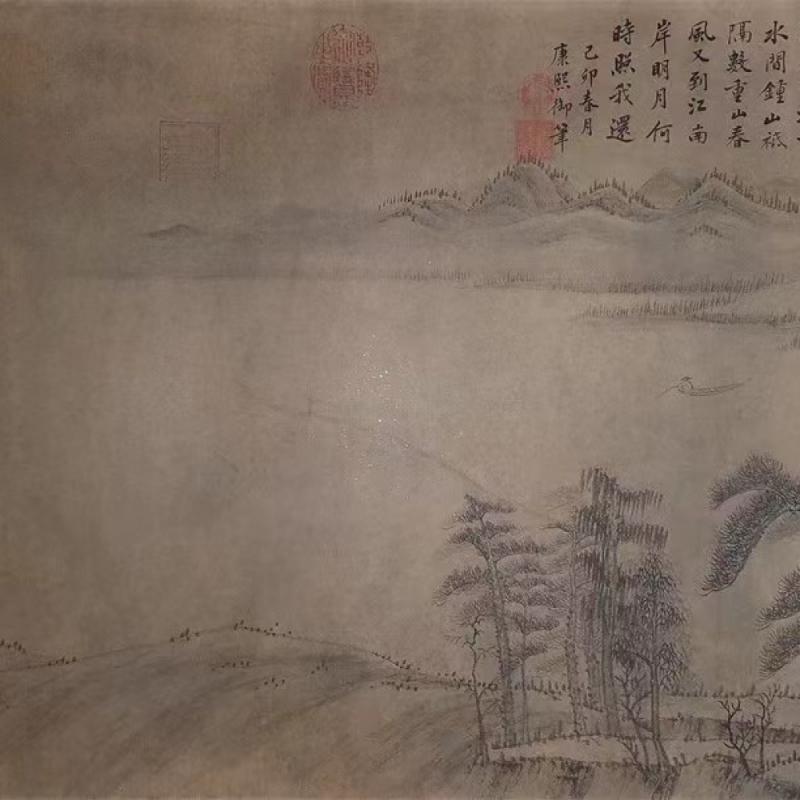 水間鍾山祗
隔數重山春
風又到江南
岸明月何
時照我還
己卯春月
康熙御筆
乾隆御覽之寶